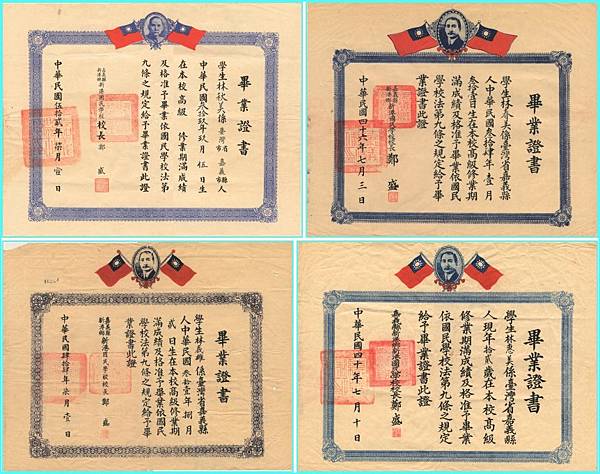 畢業證書
學生林秋美係臺灣省嘉義縣人
中華民國叁拾玖年玖月伍日生
在本校高級 修業期滿成績
及格准予畢業依國民學校法第
九條之規定給予畢業證書此證
嘉義縣新港鄉新港國民學校校長鄭盛
中華民國伍拾貳年柒月壹日
畢業證書
學生林春夫係臺灣省嘉義縣
人中華民國叁拾肆年壹月
叁拾壹日生在本校高級修業期
滿成績及格准予畢業依國民
學校法第九條之規定給予畢
業證書此證
校長鄭盛
中華民國四十六年七月三日
畢業證書
學生林義雄係臺灣省嘉義縣
人中華民國叁拾壹年捌月
貳日生在本校高級修業期
滿成績及格准予畢業依國民
學校法第九條之規定給予畢
業證書此證
嘉義縣新港鄉新港國民學校校長鄭盛
中華民國肆拾肆年柒月壹日
畢業證書
學生林惠美係臺灣省嘉義縣
人現年拾貳歲在本校高級
修業期滿成績及格准予畢業
依國民學校法第九條之規定
給予畢業證書此證
嘉義縣新港鄉新港國民學校校長鄭盛
中華民國四十年七月十日